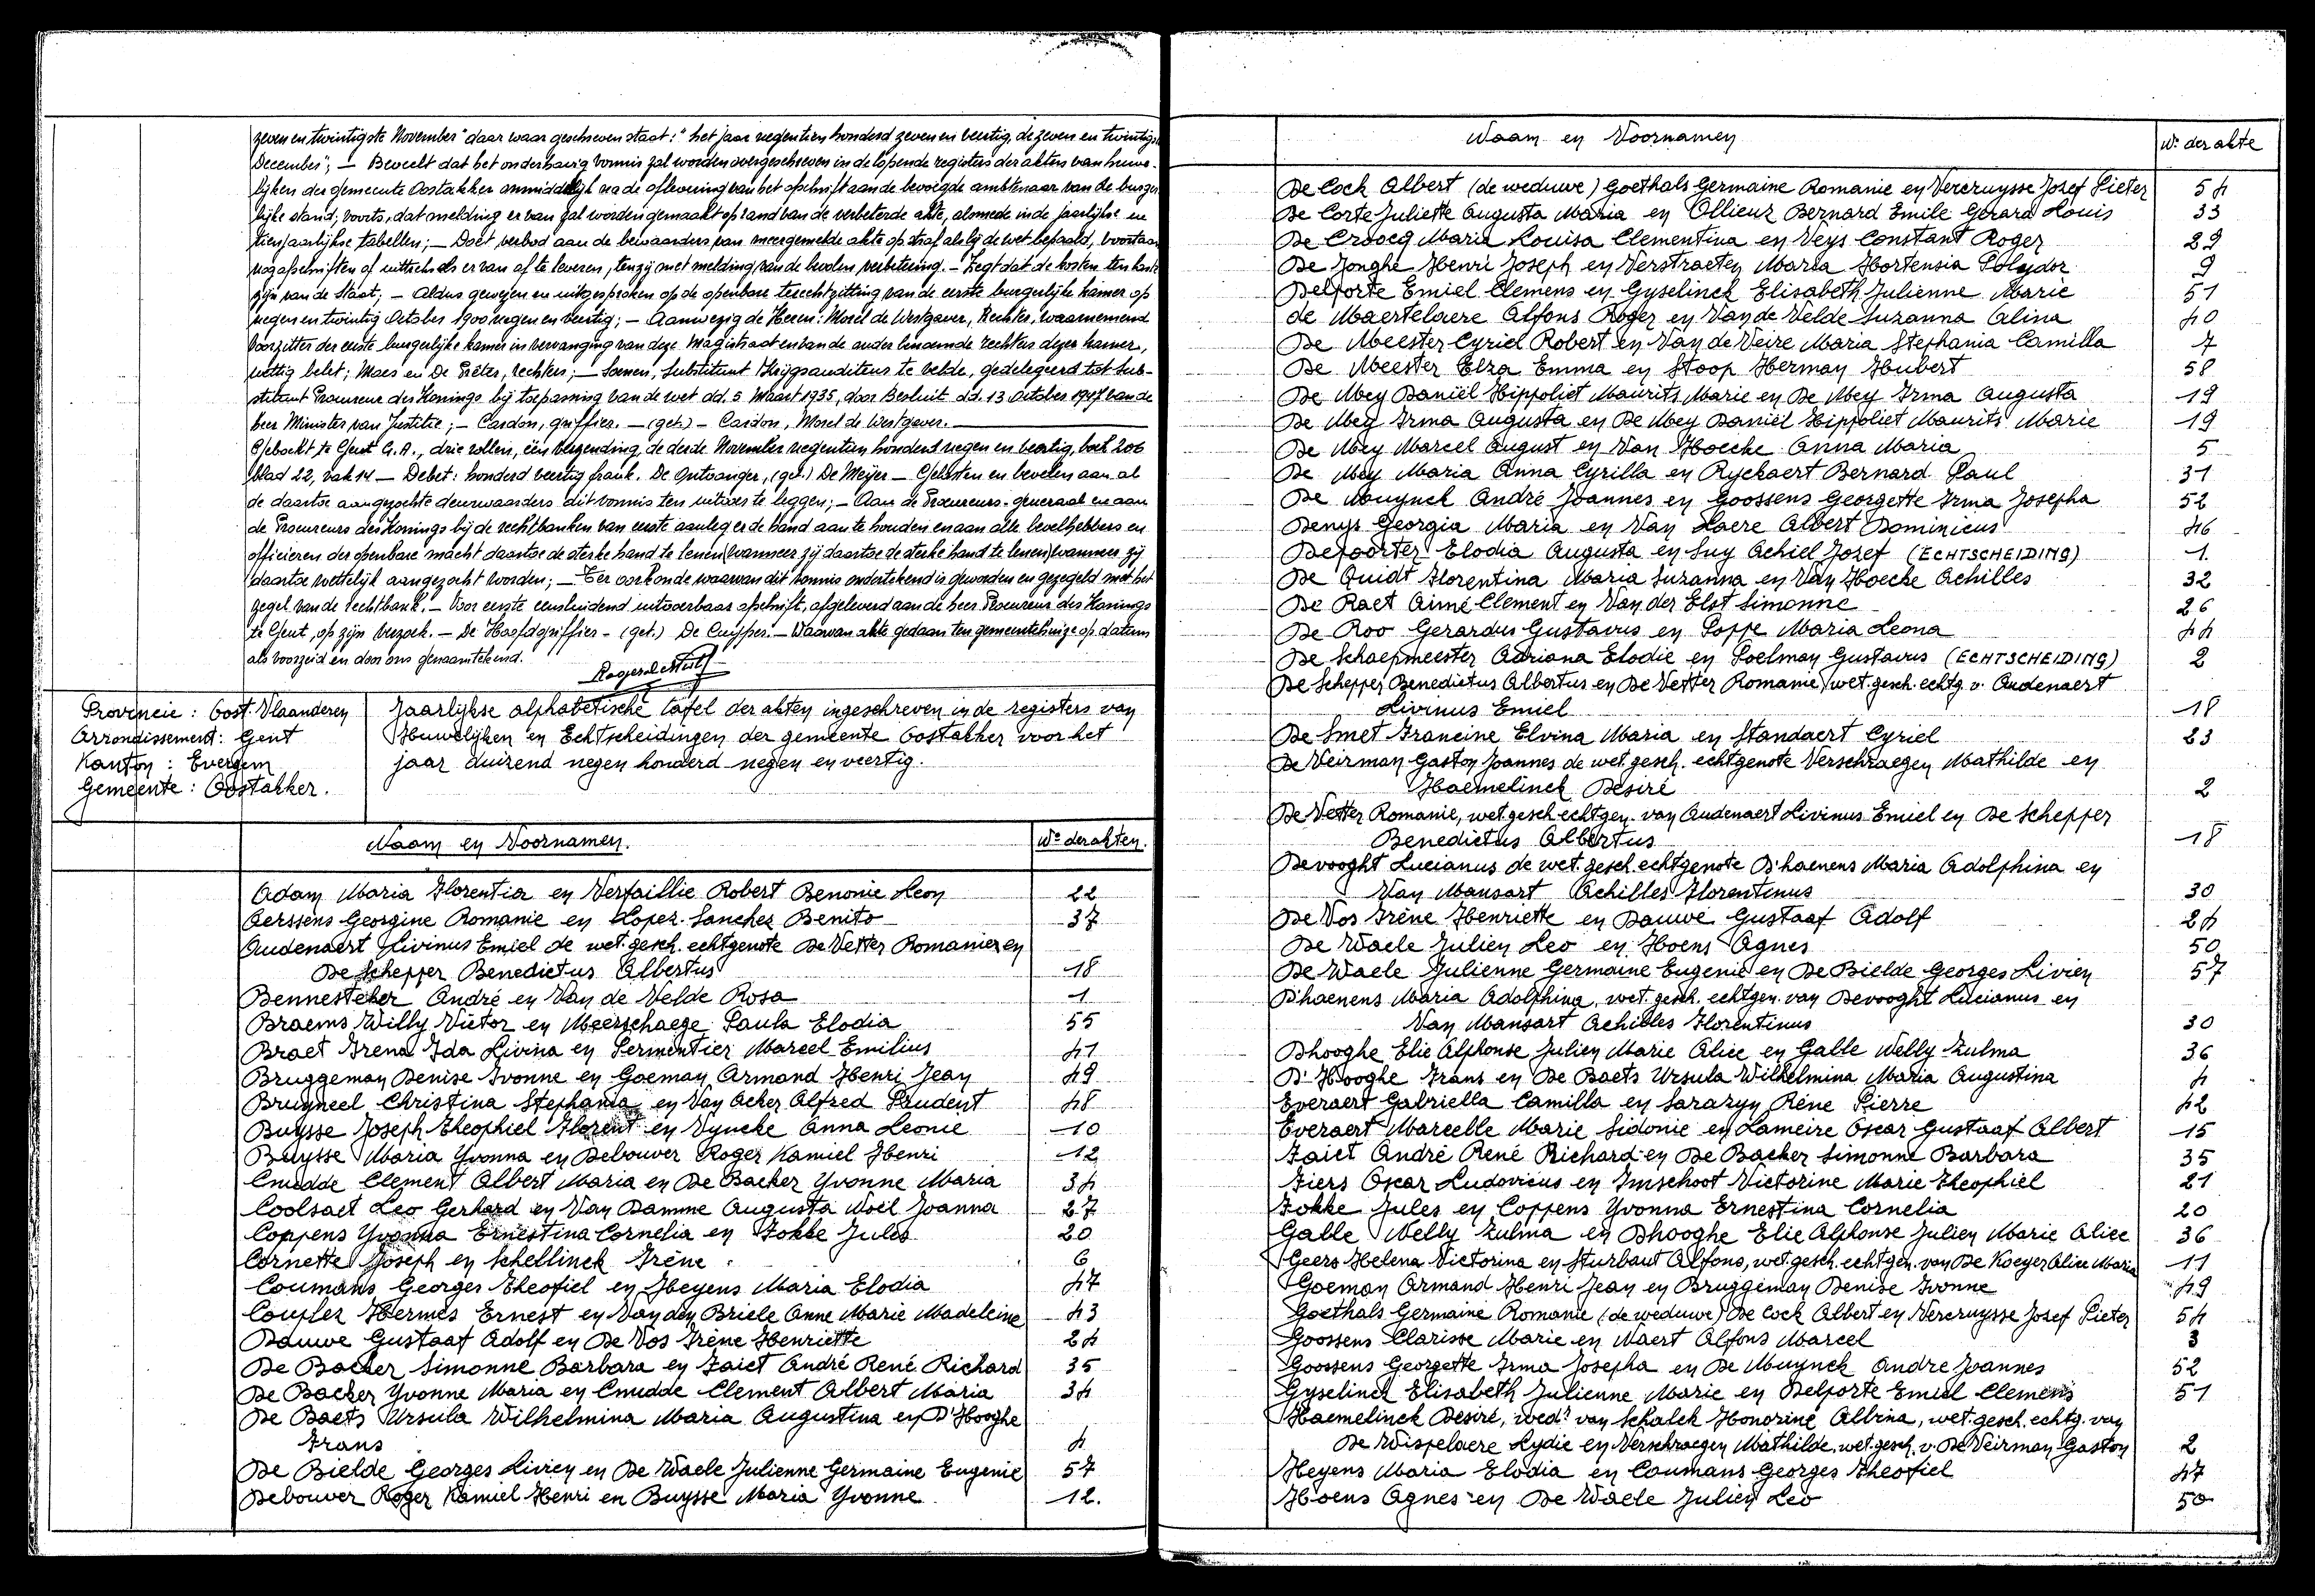 zeven en twintigste November" daar waar geschreven staat: "het jaar negentien honderd zeven en veertig, de zeven en twintigste
December"; — Beveelt dat het onderhavig vonnis zal worden overgeschreven in de lopende registers der akten van huwe-
lijken der gemeente Oostakker onmiddelijk na de aflevering van het afschrift aan de bevoegde ambtenaar van de burger
lijke stand; voorts, dat melding er van zal worden gemaakt op rand van de verbeterde akte, alsmede in de jaarlijkse en
tienjaarlijkse tabellen; — Doet verbod aan de bewaarders van meergemelde akte op straf als bij de wet bepaald, voortaan
nog afschriften of uittreksels er van af te leveren, tenzij met melding van de bevolen verbetering. — Legt dat de kosten ten laste
zijn van de Staat; — Aldus gewezen en uitgesproken op de openbare terechtzitting van de eerste burgerlijke kamer op
negen en twintig October 1900 negen en veertig; — Aanwezig de Heren: Morel de Westgaver, Rechter, waarnemend
Voorzitter der eerste burgerlijke kamer in vervanging van deze Magistraat en van de ander benoemde rechters dezer kamer,
wettig belet; Maes en De Prêter, rechters; — Soenen, Substituut Krijgsauditeur te velde, gedelegeerd tot Sub-
stituut Procureur des Konings bij toepassing van de wet dd. 5 Maart 1935, door Besluit dd. 13 October 1947 van de
heer Minister van Justitie; — Cardon, griffier. — (get.) — Cardon, Morel de Westgaver.
Geboekt te Gent G.A., drie rollen, één verzending, de derde November negentien honderd negen en veertig, boek 206
blad 22, vak 14 — Debet: honderd veertig frank. De Ontvanger, (get.) De Meyer — Gelasten en bevelen aan al
de daartoe aangezochte deurwaarders dit vonnis ten uitvoer te leggen; — Aan de Procureurs-generaal en aan
de Procureurs des Konings bij de rechtbanken van eerste aanleg er de hand aan te houden en aan alle bevelhebbers en
officieren der openbare macht daartoe de sterke hand te lenen (wanneer zij daartoe de sterke hand te lenen) wanneer zij
daartoe wettelijk aangezocht worden; — Ter oorkonde waarvan dit vonnis ondertekend is geworden en gezegeld met het
zegel van de rechtbank. — Voor eerste eensluidend uitvoerbaar afschrift, afgeleverd aan de heer Procureur des Konings
te Gent, op zijn verzoek. — De Hoofdgriffier - (get.) De Cuyper. — Waarvan akte gedaan ten gemeentehuize op datum
als voorzeid en door ons genaamtekend.
Provincie: Oost-Vlaanderen
Arrondissement: Gent
Kanton: Evergem
Gemeente: Oostakker.
Jaarlijkse alphabetische tafel der akten ingeschreven in de registers van
Huwelijken en Echtscheidingen der gemeente Oostakker voor het
jaar duizend negen honderd negen en veertig.
Naam en Voornamen. Nr der akten.
Adam Maria Florentia en Verfaillie Robert Benonie Leon 22
Aerssens Georgine Romanie en Lopez-Sanchez Benito 37
Audenaert Livinus Emiel de wet. gesch. echtgenote De Vetter Romanie en
De Schepper Benedictus Albertus 18
Bennesteker André en Van de Velde Rosa 1
Braems Willy Victor en Meerschaege Paula Elodia 55
Braet Irena Ida Livina en Permentier Marcel Emilius 41
Bruggeman Denise Ivonne en Goeman Armand Henri Jean 49
Bruyneel Christina Stephania en Van Acker Alfred Prudent 48
Buysse Joseph Theophiel Florent en Vyncke Anna Leonie 10
Buysse Maria Yvonna en Debouver Roger Kamiel Henri 12
Cnudde Clement Albert Maria en De Backer Yvonne Maria 34
Coolsaet Leo Gerhard en Van Damme Augusta Noël Joanna 27
Coppens Yvonna Ernestina Cornelia en Fokke Jules 20
Cornette Joseph en Schellinck Irène 6
Coumans Georges Theofiel en Heyens Maria Elodia 47
Coupler Hermes Ernest en Van den Briele Anne Marie Madeleine 43
Dauwe Gustaaf Adolf en De Vos Irène Henriette 24
De Backer Simonne Barbara en Faict André René Richard 35
De Backer Yvonne Maria en Cnudde Clement Albert Maria 34
De Baets Ursula Wilhelmina Maria Augustina en D'Hooghe
Frans 4
De Bielde Georges Livien en De Waele Julienne Germaine Eugenie 57
Debouver Roger Kamiel Henri en Buysse Maria Yvonne 12.
Naam en Voornamen Nr der akte
De Cock Albert (de weduwe) Goethals Germaine Romanie en Vercruysse Jozef Pieter 54
De Corte Juliette Augusta Maria en Ollieuz Bernard Emile Gerard Louis 33
De Croocq Maria Louisa Clementina en Veys Constant Roger 29
De Jonghe Henri Joseph en Verstraeten Maria Hortensia Polydor 9
Delporte Emiel Clemens en Gyselinck Elisabeth Julienne Marie 51
de Maertelaere Alfons Roger en Van de Velde Suzanna Alina 40
De Meester Cyriel Robert en Van de Veire Maria Stephania Camilla 7
De Meester Elza Emma en Stoop Herman Hubert 58
De Mey Daniël Hippoliet Maurits Marie en De Mey Irma Augusta 19
De Mey Irma Augusta en De Mey Daniël Hippoliet Maurits Marie 19
De Mey Marcel August en Van Hoecke Anna Maria 5
De Mey Maria Anna Cyrilla en Ryckaert Bernard Paul 31
De Muynck André Joannes en Goossens Georgette Irma Josepha 52
Denys Georgia Maria en Van Laere Albert Dominicus 46
Depoorter Elodia Augusta en Suy Achiel Jozef (ECHTSCHEIDING) 1.
De Quidt Florentina Maria Suzanna en Van Hoecke Achilles 32
De Raet Aimé Clement en Van der Elst Simonne 26
De Roo Gerardus Gustavus en Poppe Maria Leona 44
De Schaepmeester Adriana Elodie en Poelman Gustavus (ECHTSCHEIDING) 2
De Schepper Benedictus Albertus en De Vetter Romanie, wet. gesch. echtg. v. Audenaert
Livinus Emiel 18
De Smet Francine Elvina Maria en Standaert Cyriel 23
De Veirman Gaston Joannes de wet. gesch. echtgenote Verschraegen Mathilde en
Haemelinck Desiré 2
De Vetter Romanie, wet. gesch. echtgen. van Audenaert Livinus Emiel en De Schepper
Benedictus Albertus 18
Devooght Lucianus de wet. gesch. echtgenote D'haenens Maria Adolphina en
Van Mansart Achilles Florentinus 30
De Vos Irène Henriette en Dauwe Gustaaf Adolf 24
De Waele Julien Leo en Hoens Agnes 50
De Waele Julienne Germaine Eugenie en De Bielde Georges Livien 57
D'haenens Maria Adolphina, wet. gesch. echtgen. van Devooght Lucianus en
Van Mansart Achilles Florentinus 30
Dhooghe Elie Alphonse Julien Marie Alice en Galle Nelly Zulma 36
D'Hooghe Frans en De Baets Ursula Wilhelmina Maria Augustina 4
Everaert Gabriella Camilla en Sarazyn Réne Pierre 42
Everaert Marcelle Marie Sidonie en Lameire Oscar Gustaaf Albert 15
Faict André René Richard en De Backer Simonne Barbara 35
Fiers Oscar Ludovicus en Imschoot Victorine Marie Theophiel 21
Fokke Jules en Coppens Yvonna Ernestina Cornelia 20
Galle Nelly Zulma en Dhooghe Elie Alphonse Julien Marie Alice 36
Geers Helena Victorina en Sturbaut Alfons, wet. gesch. echtgen. van De Koeyer Alice Maria 11
Goeman Armand Henri Jean en Bruggeman Denise Ivonne 49
Goethals Germaine Romanie (de weduwe) De Cock Albert en Vercruysse Jozef Pieter 54
Goossens Clarisse Marie en Naert Alfons Marcel 3
Goossens Georgette Irma Josepha en De Muynck Andre Joannes 52
Gyselinck Elisabeth Julienne Marie en Delporte Emiel Clemens 51
Haemelinck Desiré, wedr van Schalck Honorine Albina, wet. gesch. echtg. van
De Wispelaere Lydie en Verschraegen Mathilde, wet. gesch. v. De Veirman Gaston 2
Heyens Maria Elodia en Coumans Georges Theofiel 47
Hoens Agnes en De Waele Julien Leo 50